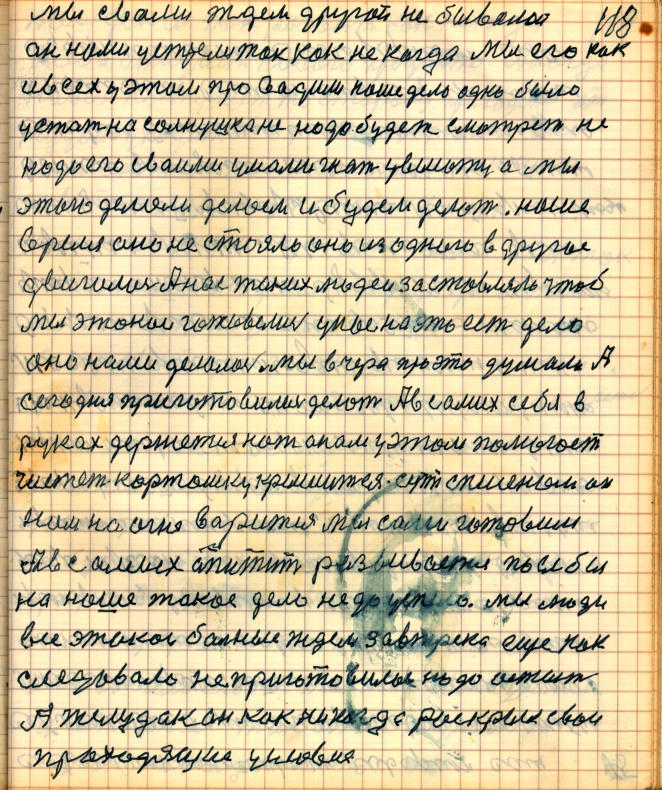 118
мы свами ждем другой не бывалой
он нами устрелиток как не когда мы его как
ивсех у этом про вадим наше дело одно было
устат на солнушка не надо будет смотрет не
надо его сваими умами гнат увиноту а мы
этого делоли делоем и будем делот. наше
время оно не стояло оно из одного в другое
двигалос А нас таких людей заставляло чтоб
мы этакои готовелис у нас на эта ест дело
оно нами делолос. мы вчера про это думали А
сегодня приготовилис делот А в самих себя в
руках держется нож онам у этом помогает
чистет картошку, кришится. суп спшеном он
нам на огня варится мы сами готовим
А в самых апитит развивается посе бы
на наше такое дело недоуспело. мы люди
все этакои болные ждем завтрека еще как
следовало не приготовилос надо ждат
А желудак он как никогда раскрыл свои
проходящие условия